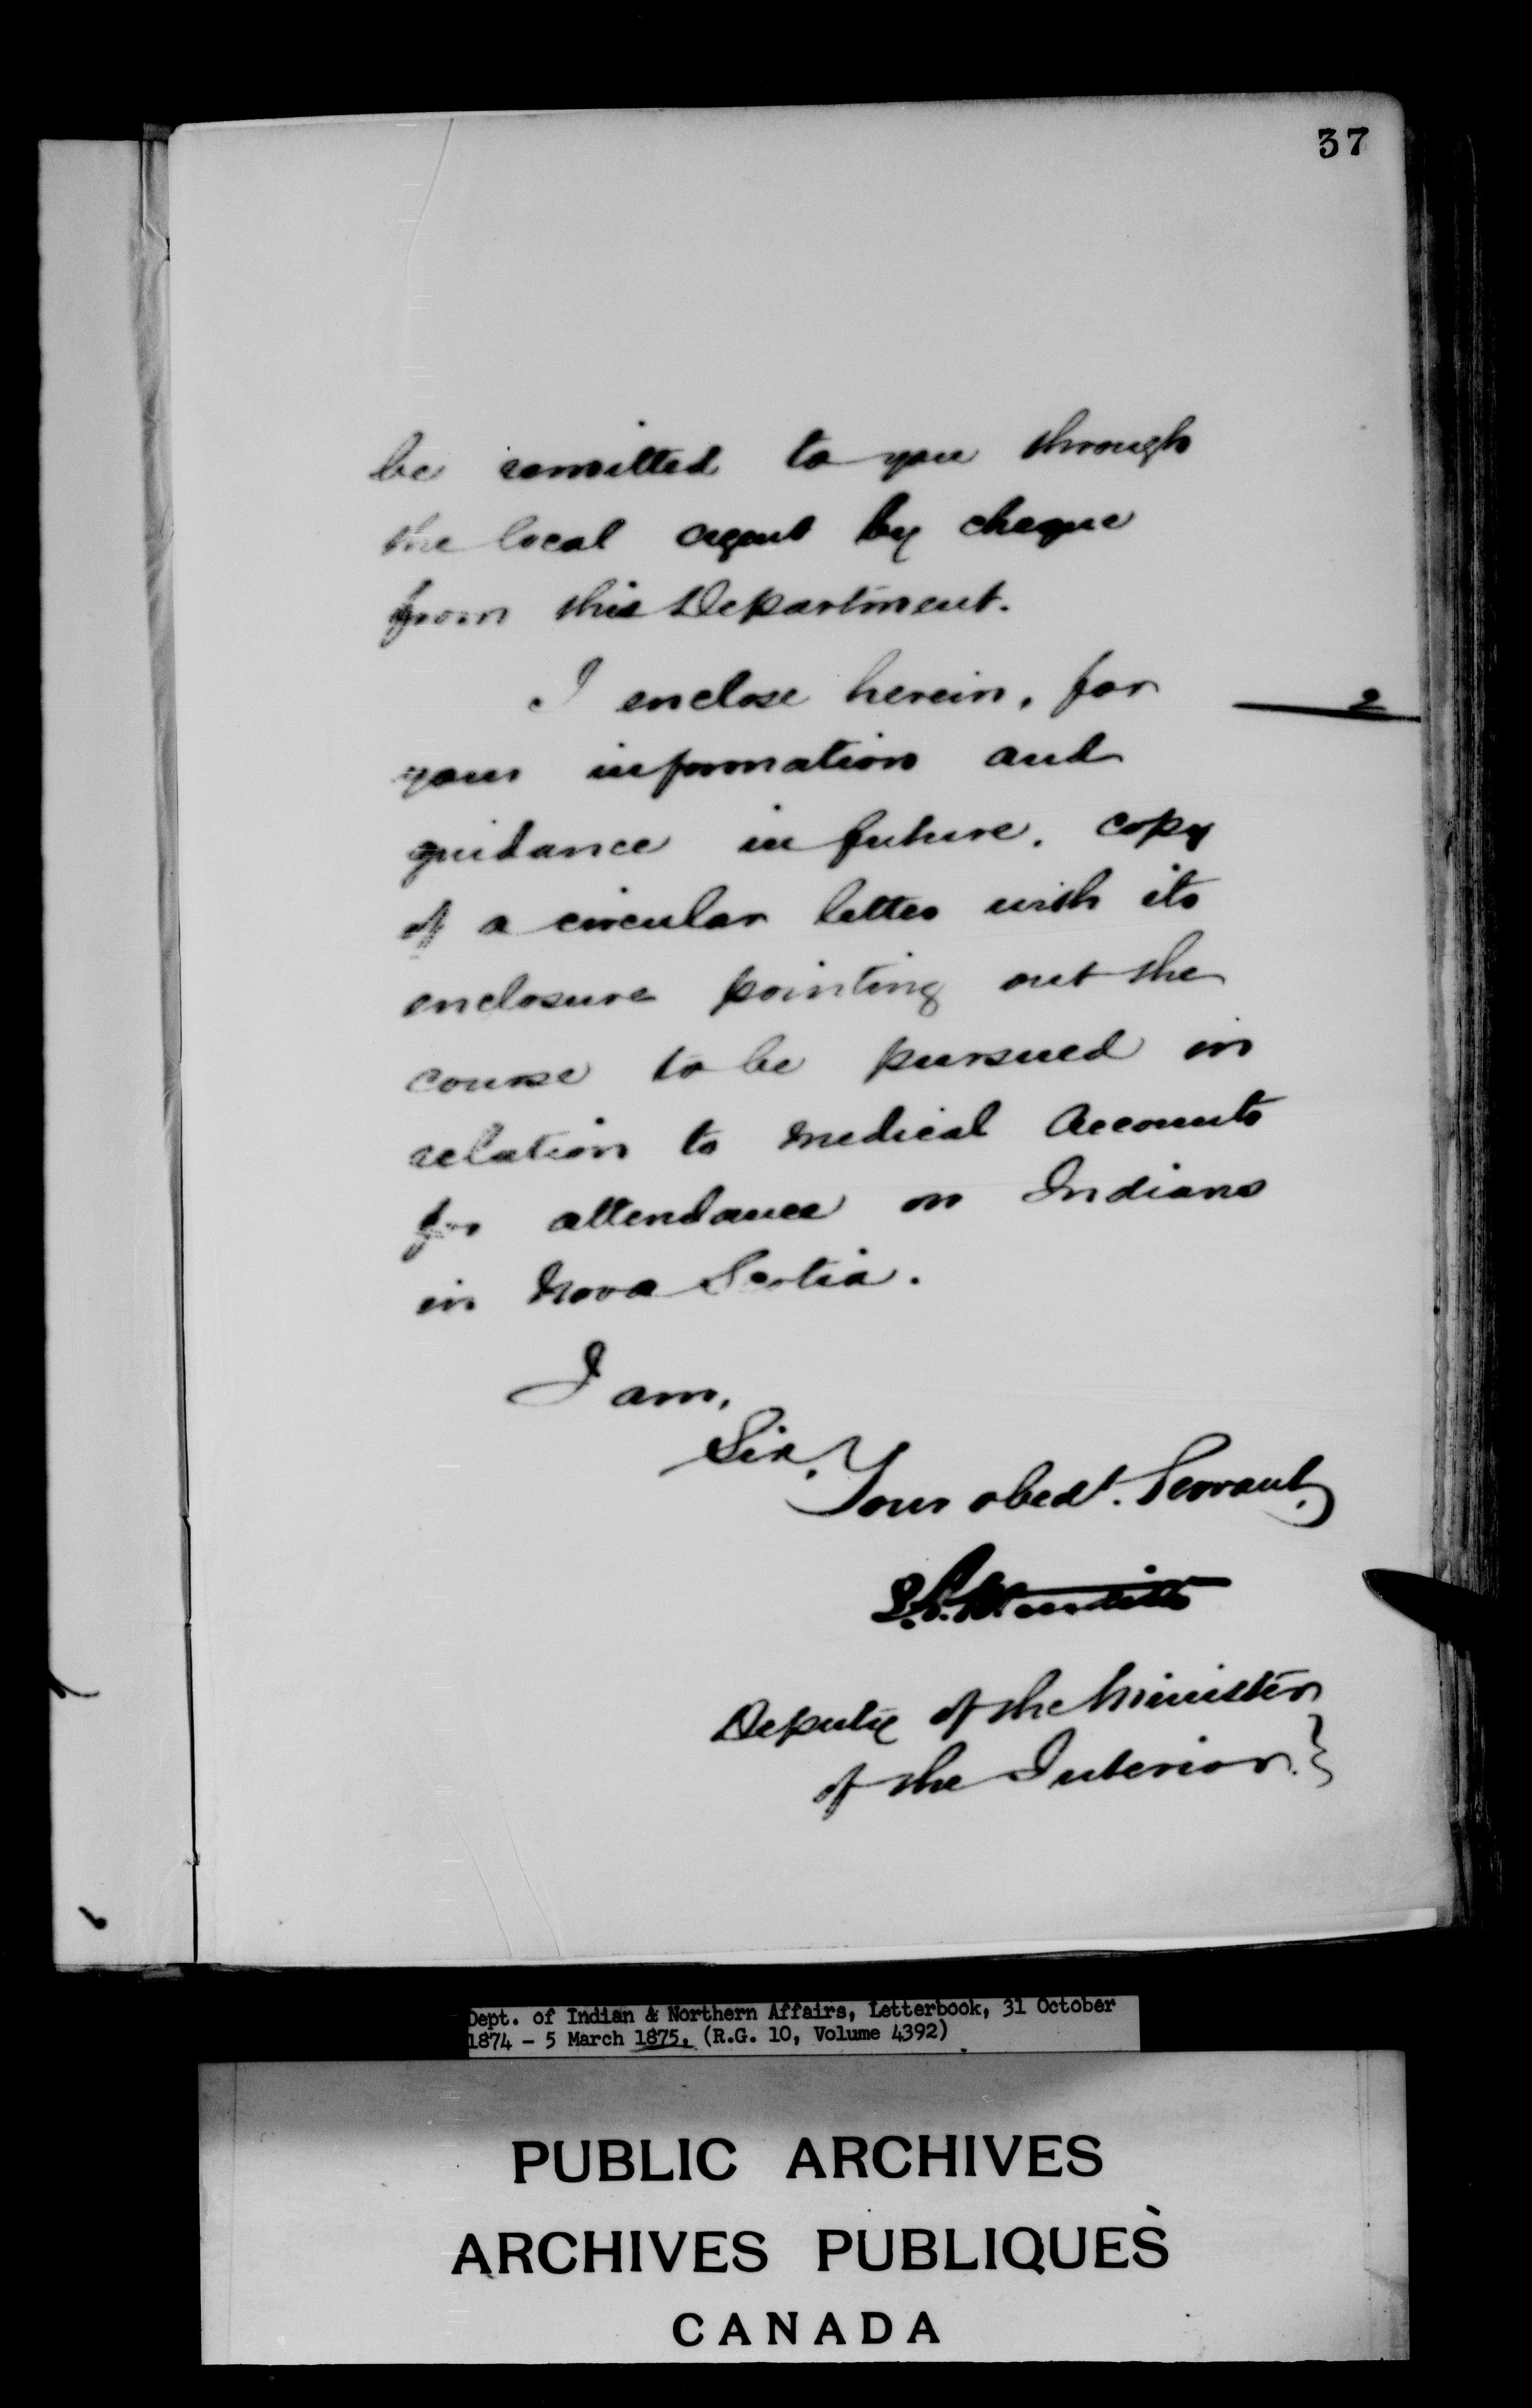 37
be remitted to you through
the local agent by cheque
from this Department.
I enclose herein, for
2
your information and
guidance in future, copy
of a circular letter with its
enclosure pointing out the
course to be pursued in
relation to Medical Accounts
for attendance on Indians
in Nova Scotia.
I am,
Sir,
Your obedt. Servant,
Deputy of the Minister
of the Interior.
Dept. of Indian & Northern Affairs, Letterbook, 31 October
1874 - 5 March 1875, (R.G. 10, Volume 4392)
PUBLIC ARCHIVES
ARCHIVES PUBLIQUES
CANADA